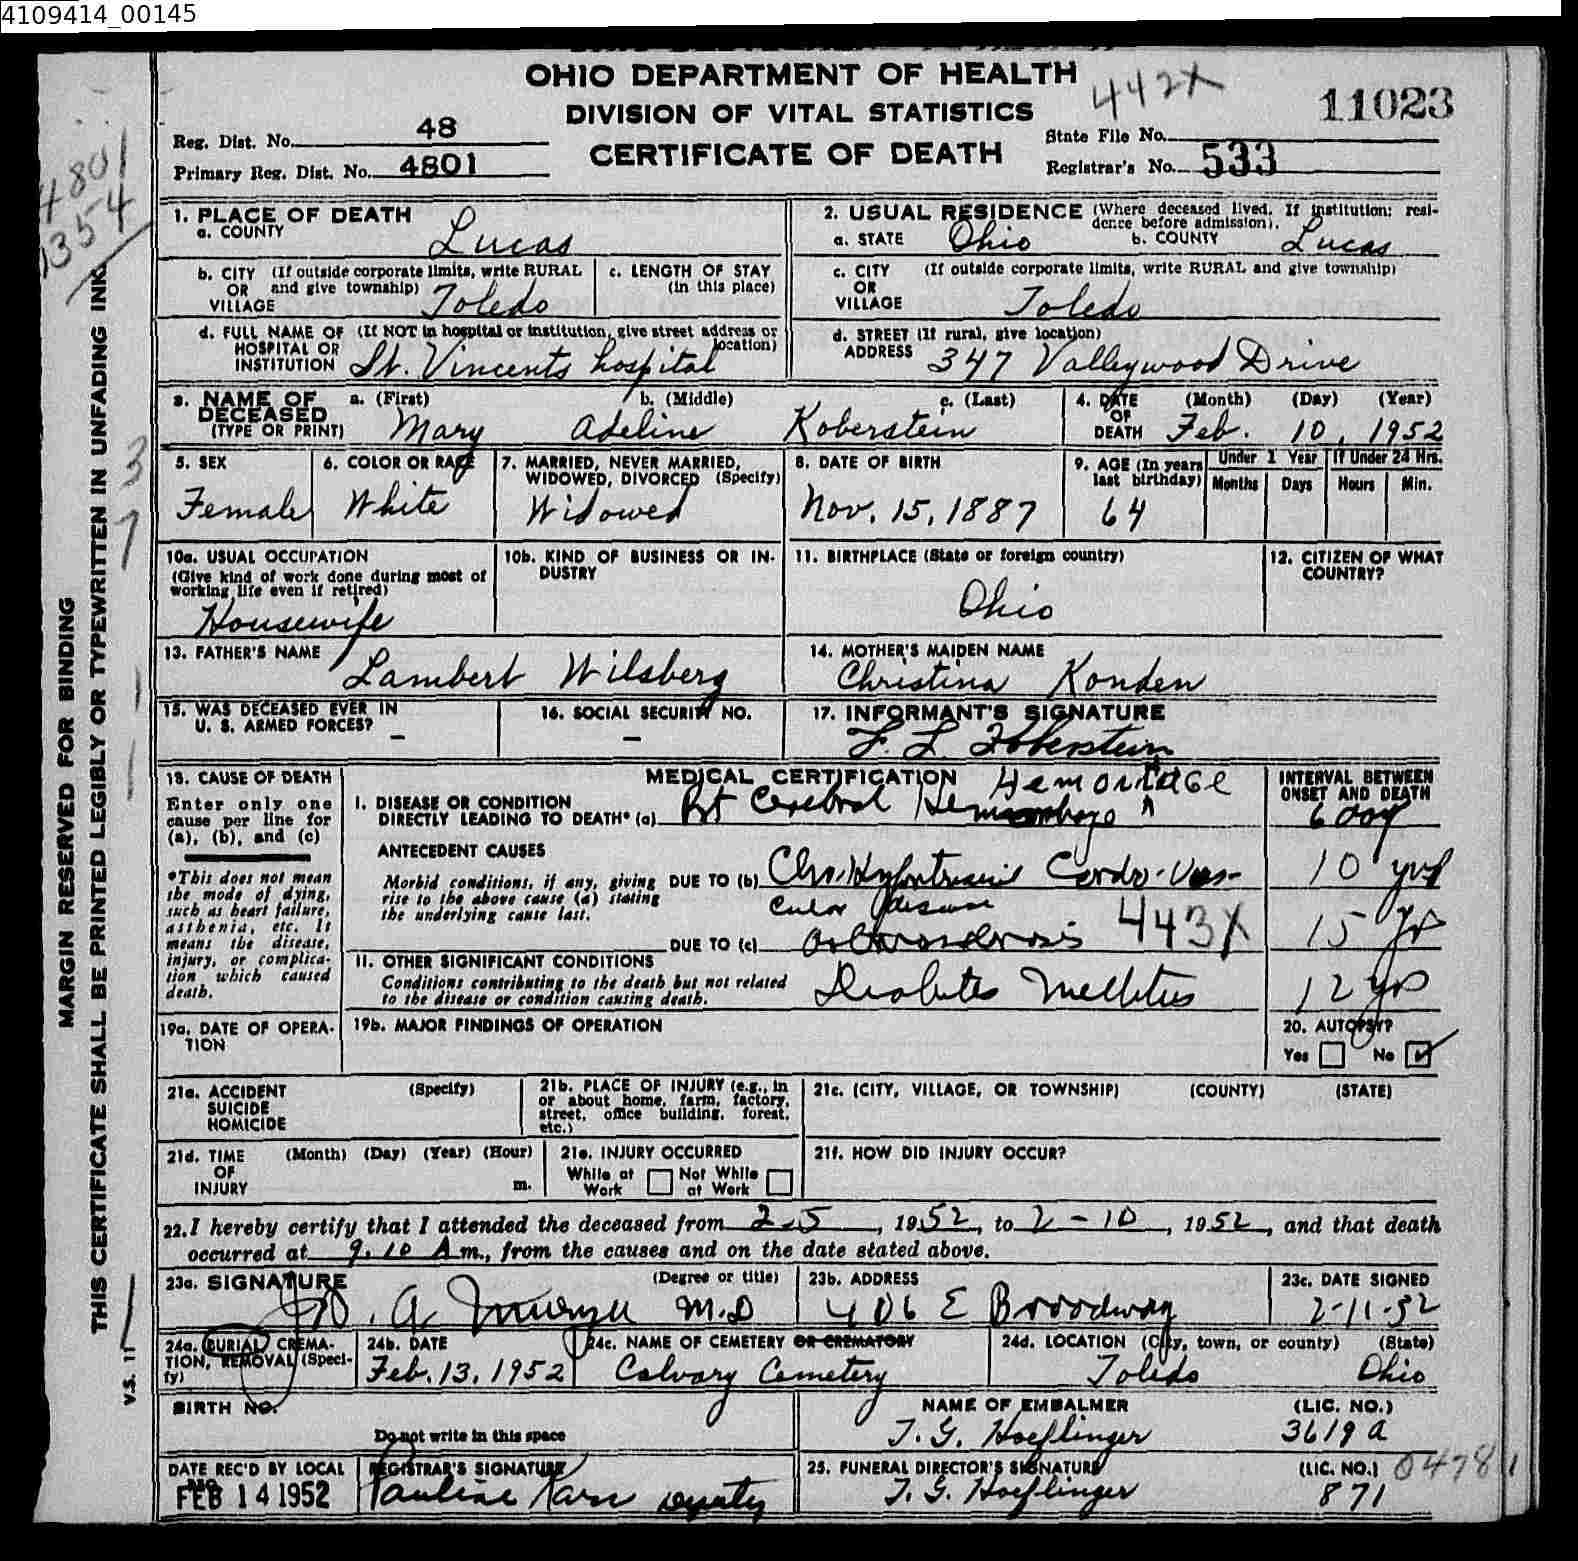 4109414_00145
OHIO DEPARTMENT OF HEALTH
442X
11023
DIVISION OF VITAL STATISTICS
CERTIFICATE OF DEATH
Reg. Dist. No. 48
Primary Reg. Dist. No. 4801
State File No.
Registrar's No. 533
4801
1354
MARGIN RESERVED FOR BINDING
THIS CERTIFICATE SHALL BE PRINTED LEGIBLY OR TYPEWRITTEN IN UNFADING INK.
V.S. 11
1. PLACE OF DEATH
a. COUNTY Lucas
2. USUAL RESIDENCE (Where deceased lived. If institution: resi-
dence before admission).
a. STATE Ohio b. COUNTY Lucas
b. CITY (If outside corporate limits, write RURAL
OR and give township)
VILLAGE Toledo
c. LENGTH OF STAY
(in this place)
c. CITY (If outside corporate limits, write RURAL and give township)
OR
VILLAGE Toledo
d. FULL NAME OF (If NOT in hospital or institution, give street address or
HOSPITAL OR location)
INSTITUTION St. Vincents hospital
d. STREET (If rural, give location)
ADDRESS 347 Valleywood Drive
3. NAME OF a. (First) b. (Middle) c. (Last)
DECEASED
(TYPE OR PRINT) Mary Adeline Koberstein
4. DATE (Month) (Day) (Year)
OF
DEATH Feb. 10, 1952
5. SEX
Female
6. COLOR OR RACE
White
7. MARRIED, NEVER MARRIED,
WIDOWED, DIVORCED (Specify)
Widowed
8. DATE OF BIRTH
Nov. 15, 1887
9. AGE (In years
last birthday)
64
Under 1 Year If Under 24 Hrs.
Months Days Hours Min.
10a. USUAL OCCUPATION
(Give kind of work done during most of
working life even if retired)
Housewife
10b. KIND OF BUSINESS OR IN-
DUSTRY
11. BIRTHPLACE (State or foreign country)
Ohio
12. CITIZEN OF WHAT
COUNTRY?
13. FATHER'S NAME
Lambert Wilsberg
14. MOTHER'S MAIDEN NAME
Christina Konden
15. WAS DECEASED EVER IN
U. S. ARMED FORCES? –
16. SOCIAL SECURITY NO.
–
17. INFORMANT'S SIGNATURE
F. L. Koberstein
18. CAUSE OF DEATH
Enter only one
cause per line for
(a), (b), and (c)
*This does not mean
the mode of dying,
such as heart failure,
asthenia, etc. It
means the disease,
injury, or complica-
tion which caused
death.
MEDICAL CERTIFICATION Hemorrhage
I. DISEASE OR CONDITION
DIRECTLY LEADING TO DEATH* (a) Rt Cerebral Hemorrhage
INTERVAL BETWEEN
ONSET AND DEATH
6 day
ANTECEDENT CAUSES
Morbid conditions, if any, giving
rise to the above cause (a) stating
the underlying cause last.
DUE TO (b) Chr. Hypertensive Cardio-Vas-
cular disease
10 yrs
443X
DUE TO (c) arteriosclerosis
15 yr
II. OTHER SIGNIFICANT CONDITIONS
Conditions contributing to the death but not related
to the disease or condition causing death.
Diabetes Mellitus
12 yrs
19a. DATE OF OPERA-
TION
19b. MAJOR FINDINGS OF OPERATION
20. AUTOPSY?
Yes No ✓
21a. ACCIDENT (Specify)
SUICIDE
HOMICIDE
21b. PLACE OF INJURY (e.g., in
or about home, farm, factory,
street, office building, forest,
etc.)
21c. (CITY, VILLAGE, OR TOWNSHIP) (COUNTY) (STATE)
21d. TIME (Month) (Day) (Year) (Hour)
OF
INJURY m.
21e. INJURY OCCURRED
While at Not While
Work at Work
21f. HOW DID INJURY OCCUR?
22. I hereby certify that I attended the deceased from 2-5, 1952, to 2-10, 1952, and that death
occurred at 9.10 A m., from the causes and on the date stated above.
23a. SIGNATURE (Degree or title)
M.D
23b. ADDRESS
406 E Broadway
23c. DATE SIGNED
2-11-52
24a. BURIAL, CREMA-
TION, REMOVAL (Speci-
fy)
24b. DATE
Feb. 13, 1952
24c. NAME OF CEMETERY OR CREMATORY
Calvary Cemetery
24d. LOCATION (City, town, or county) (State)
Toledo Ohio
BIRTH NO.
Do not write in this space
NAME OF EMBALMER (LIC. NO.)
T. G. Hoeflinger 3619 a
DATE REC'D BY LOCAL
REG.
FEB 14 1952
REGISTRAR'S SIGNATURE
Pauline Karr deputy
25. FUNERAL DIRECTOR'S SIGNATURE (LIC. NO.)
T. G. Hoeflinger 871